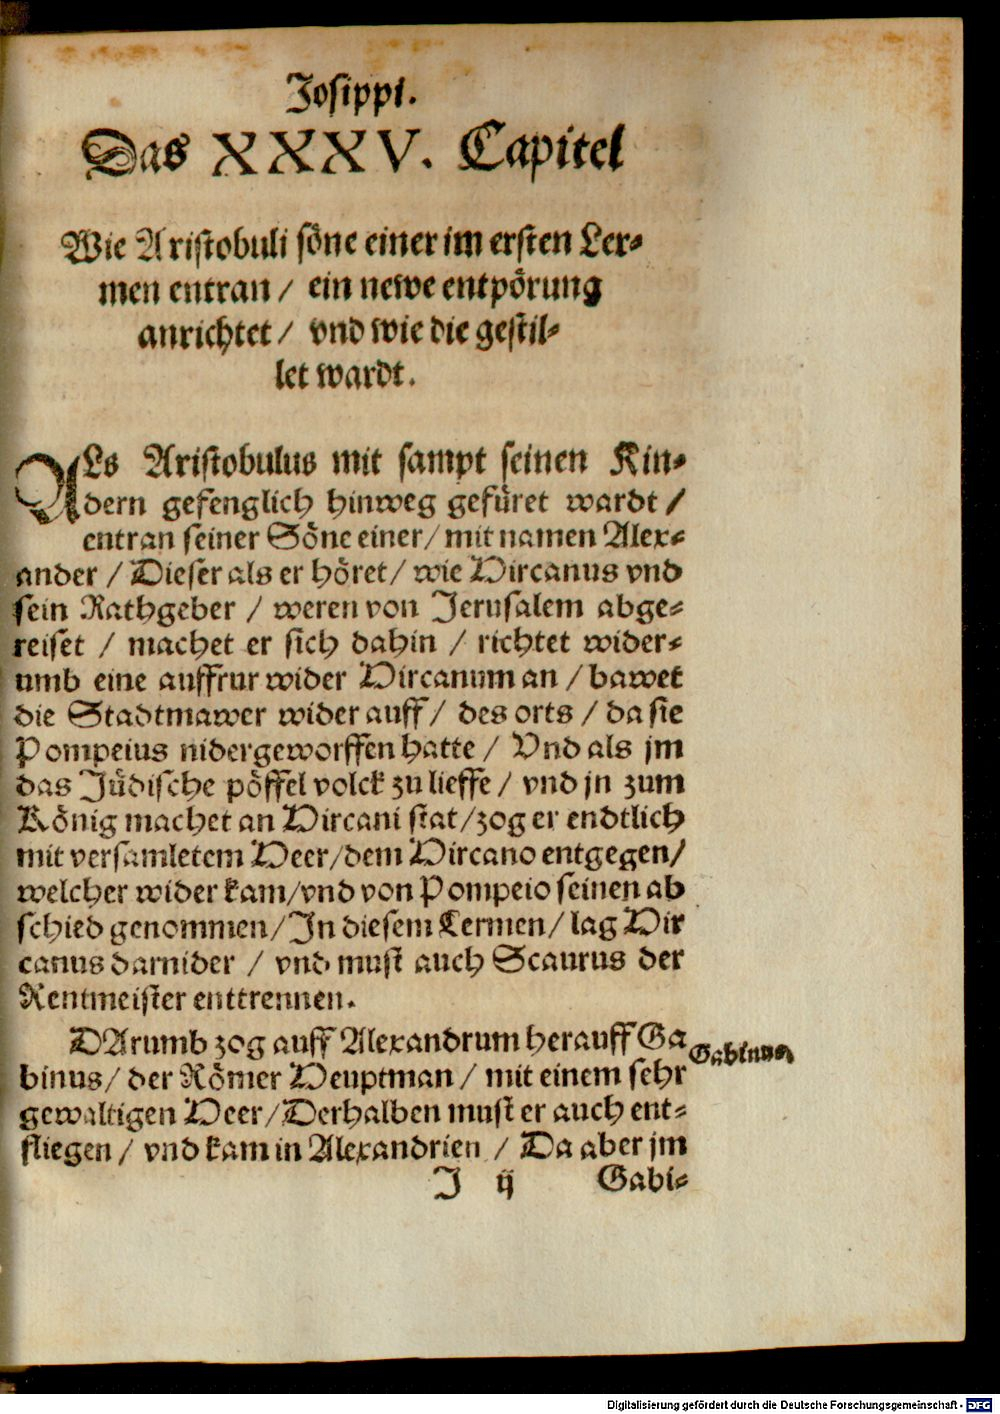 Josippi.
Das XXXV. Capitel
Wie Aristobuli söne einer im ersten Ler⸗
men entran / ein newe entpörung
anrichtet / vnd wie die gestil⸗
let wardt.
ALs Aristobulus mit sampt seinen Kin⸗
dern gefenglich hinweg gefüret wardt /
entran seiner Söne einer / mit namen Alex⸗
ander / Dieser als er höret / wie Hircanus vnd
sein Rathgeber / weren von Jerusalem abge⸗
reiset / machet er sich dahin / richtet wider⸗
umb eine auffrur wider Hircanum an / bawet
die Stadtmawer wider auff / des orts / da sie
Pompeius nidergeworffen hatte / Vnd als jm
das Jüdische pöffel volck zu lieffe / vnd jn zum
König machet an Hircani stat / zog er endtlich
mit versamletem Heer / dem Hircano entgegen /
welcher wider kam / vnd von Pompeio seinen ab
schied genommen / In diesem Lermen / lag Hir
canus darnider / vnd must auch Scaurus der
Rentmeister enttrennen.
DArumb zog auff Alexandrum herauff Ga
Gabinus
binus / der Römer Heuptman / mit einem sehr
gewaltigen Heer / Derhalben must er auch ent⸗
fliegen / vnd kam in Alexandrien / Da aber jm
J ij Gabi⸗
Digitalisierung gefördert durch die Deutsche Forschungsgemeinschaft - DFG